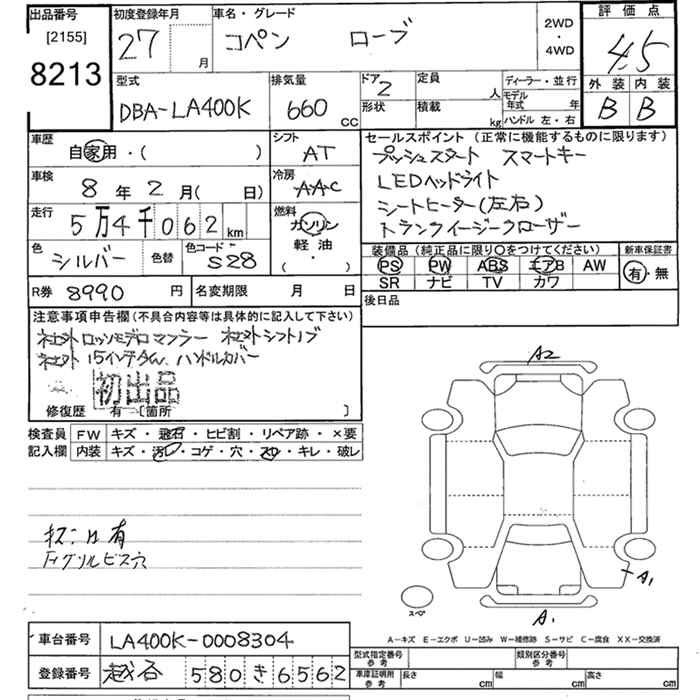 出品番号
[2155]
8213
初度登録年月
27 月
車名・グレード
コペン ローブ
2WD
・
4WD
評価点
4.5
外装 内装
B B
型式
DBA-LA400K
排気量
660 cc
ドア
2
形状
定員
人
積載
kg
ディーラー・並行
モデル年式 年
ハンドル 左・右
車歴
自家用・( )
シフト
AT
車検
8年2月(日)
冷房
AAC
走行
5万4千062km
燃料
ガソリン
軽油
(・)
色
シルバー
色替
色コード
S28
R券 8990円
名変期限 月 日
セールスポイント(正常に機能するものに限ります)
プッシュスタート スマートキー
LEDヘッドライト
シートヒーター(左右)
トランクイージークローザー
装備品(純正品に限り〇をつけてください)
PS PW ABS エアB AW
SR ナビ TV カワ
新車保証書
有・無
後日品
注意事項申告欄(不具合内容等は具体的に記入して下さい)
社外ロッソモデロマフラー 社外シフトノブ
社外15インチAW、ハンドルカバー
初出品
修復歴 有 〔箇所 〕
検査員 FW キズ・飛石・ヒビ割・リペア跡・×要
記入欄 内装 キズ・汚レ・コゲ・穴・スレ・キレ・破レ
有
Fグリルビス穴
A2
A1
A1
スペア
A-キズ E-エクボ U-凹み W-補修跡 S-サビ C-腐食 XX-交換済
車台番号 LA400K-0008304
登録番号 越谷 580き6562
型式指定番号
参考
類別区分番号
参考
車庫証明用
参考
長さ cm 幅 cm 高さ cm